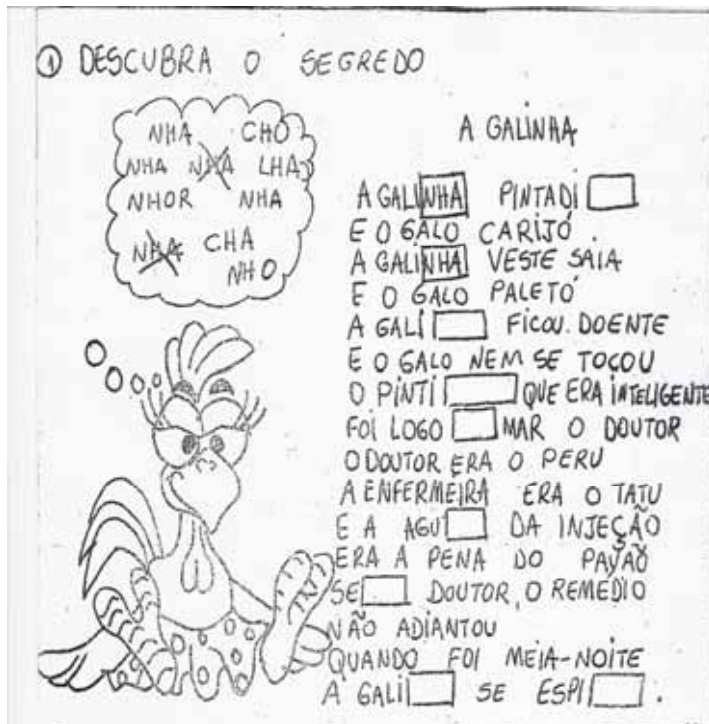 ① DESCUBRA O SEGREDO
NHA CHO
NHA NHA LHA
NHOR NHA
NHA CHA
NHO
A GALINHA
A GALINHA PINTADI
E O GALO CARIJÓ.
A GALINHA VESTE SAIA
E O GALO PALETÓ
A GALI FICOU DOENTE
E O GALO NEM SE TOCOU
O PINTI QUE ERA INTELIGENTE
FOI LOGO MAR O DOUTOR
O DOUTOR ERA O PERU
A ENFERMEIRA ERA O TATU
E A AGU DA INJEÇÃO
ERA A PENA DO PAVÃO
SE DOUTOR, O REMÉDIO
NÃO ADIANTOU
QUANDO FOI MEIA-NOITE
A GALI SE ESPI .